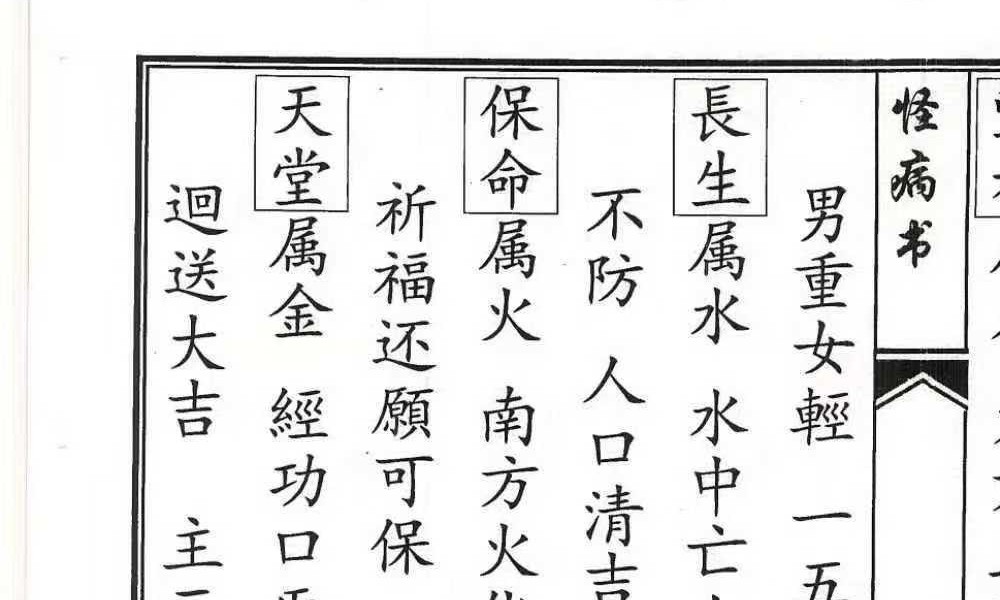 怪病书
男重女輕 一五
長生属水 水中亡
不防 人口清吉
保命属火 南方火
祈福还願可保
天堂属金 經功口
迴送大吉 主